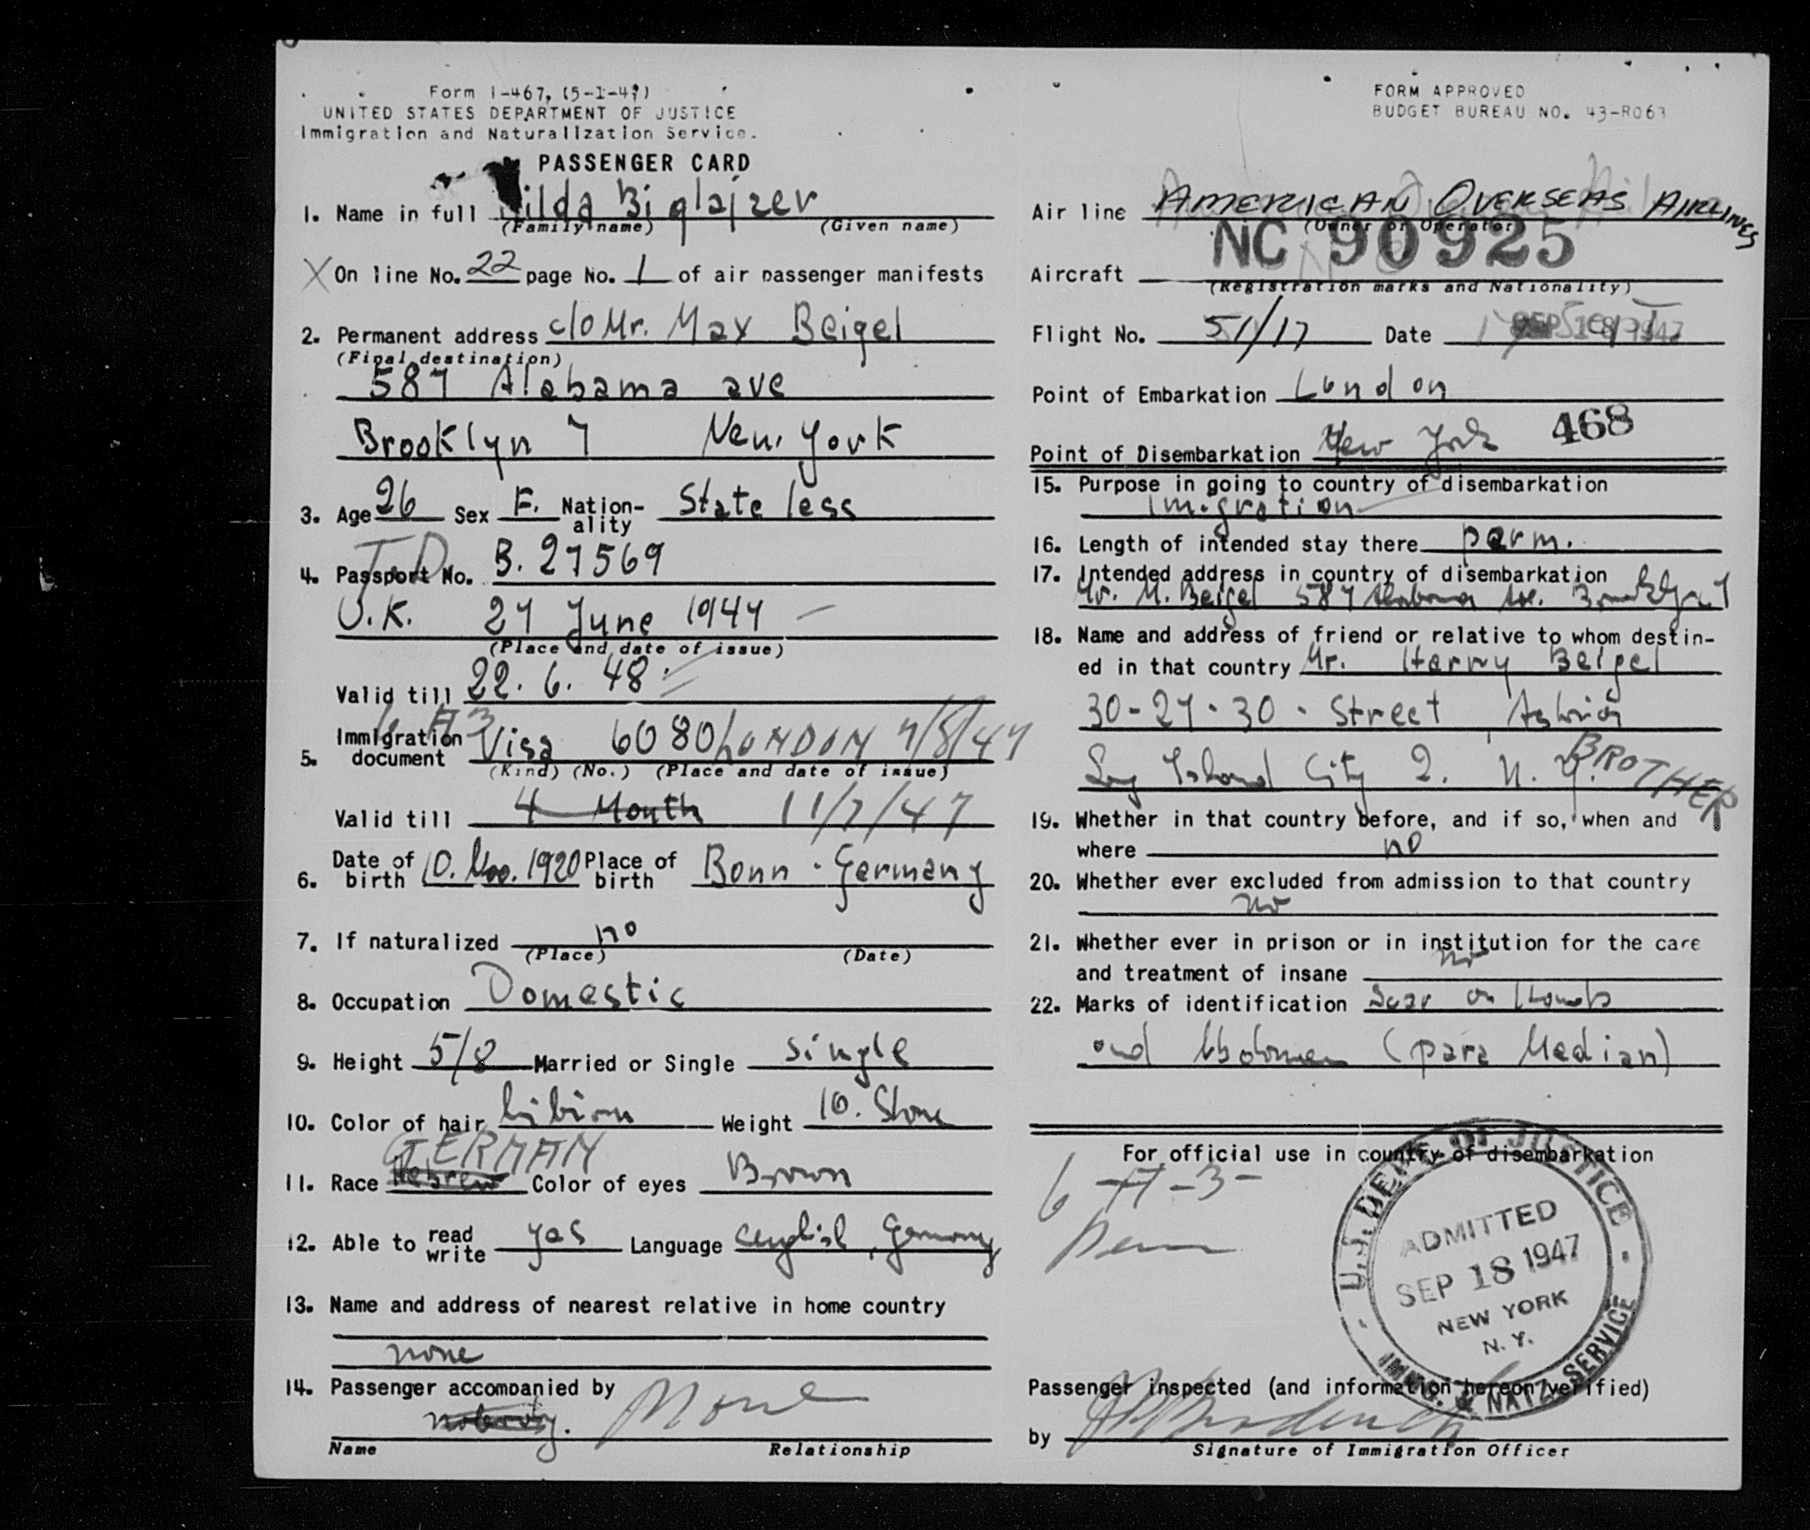 Form I-467, (5-1-47)
UNITED STATES DEPARTMENT OF JUSTICE
Immigration and Naturalization Service.
PASSENGER CARD
1. Name in full ilda Biglajzer
(Family name) (Given name)
X On line No. 22 page No. 1 of air passenger manifests
2. Permanent address c/o Mr. Max Beigel
(Final destination)
587 Alabama ave
Brooklyn 7 New York
3. Age 26 Sex F. Nationality State less
4. Passport No. B. 27569
T.D
U.K. 27 June 1947
(Place and date of issue)
Valid till 22. 6. 48.
6 A3
5. Immigration document Visa 6080 LONDON 7/8/47
(Kind) (No.) (Place and date of issue)
Valid till 4 Month 11/7/47
6. Date of birth 10. Nov. 1920 Place of birth Bonn - Germany
7. If naturalized no
(Place) (Date)
8. Occupation Domestic
9. Height 5/8 Married or Single single
10. Color of hair Weight 10. Stone
GERMAN
11. Race Hebrew Color of eyes Brown
12. Able to read write yes Language english, Germany
13. Name and address of nearest relative in home country
none
14. Passenger accompanied by None
nobody.
Name Relationship
FORM APPROVED
BUDGET BUREAU NO. 43-R063
Air line AMERICAN OVERSEAS AIRLINES
(Owner or Operator)
Aircraft NC 90925
(Registration marks and Nationality)
Flight No. 51/17 Date SEP 18 1947
Point of Embarkation London
Point of Disembarkation New York 468
15. Purpose in going to country of disembarkation
Imigration
16. Length of intended stay there perm.
17. Intended address in country of disembarkation
Mr. M. Beigel 587 Alabama Ave. Brooklyn 7
18. Name and address of friend or relative to whom destin-
ed in that country Mr. Harry Beigel
30-27-30 - Street Astoria
Long Island City 2. N.Y. BROTHER
19. Whether in that country before, and if so, when and
where no
20. Whether ever excluded from admission to that country
no
21. Whether ever in prison or in institution for the care
and treatment of insane no
22. Marks of identification Scar on
and Abdomen (para Median)
For official use in country of disembarkation
6-A-3-
Perm
U.S. DEPT. OF JUSTICE
ADMITTED
SEP 18 1947
NEW YORK
N.Y.
IMMIG. & NATZ. SERVICE
Passenger inspected (and information hereon verified)
by
Signature of Immigration Officer